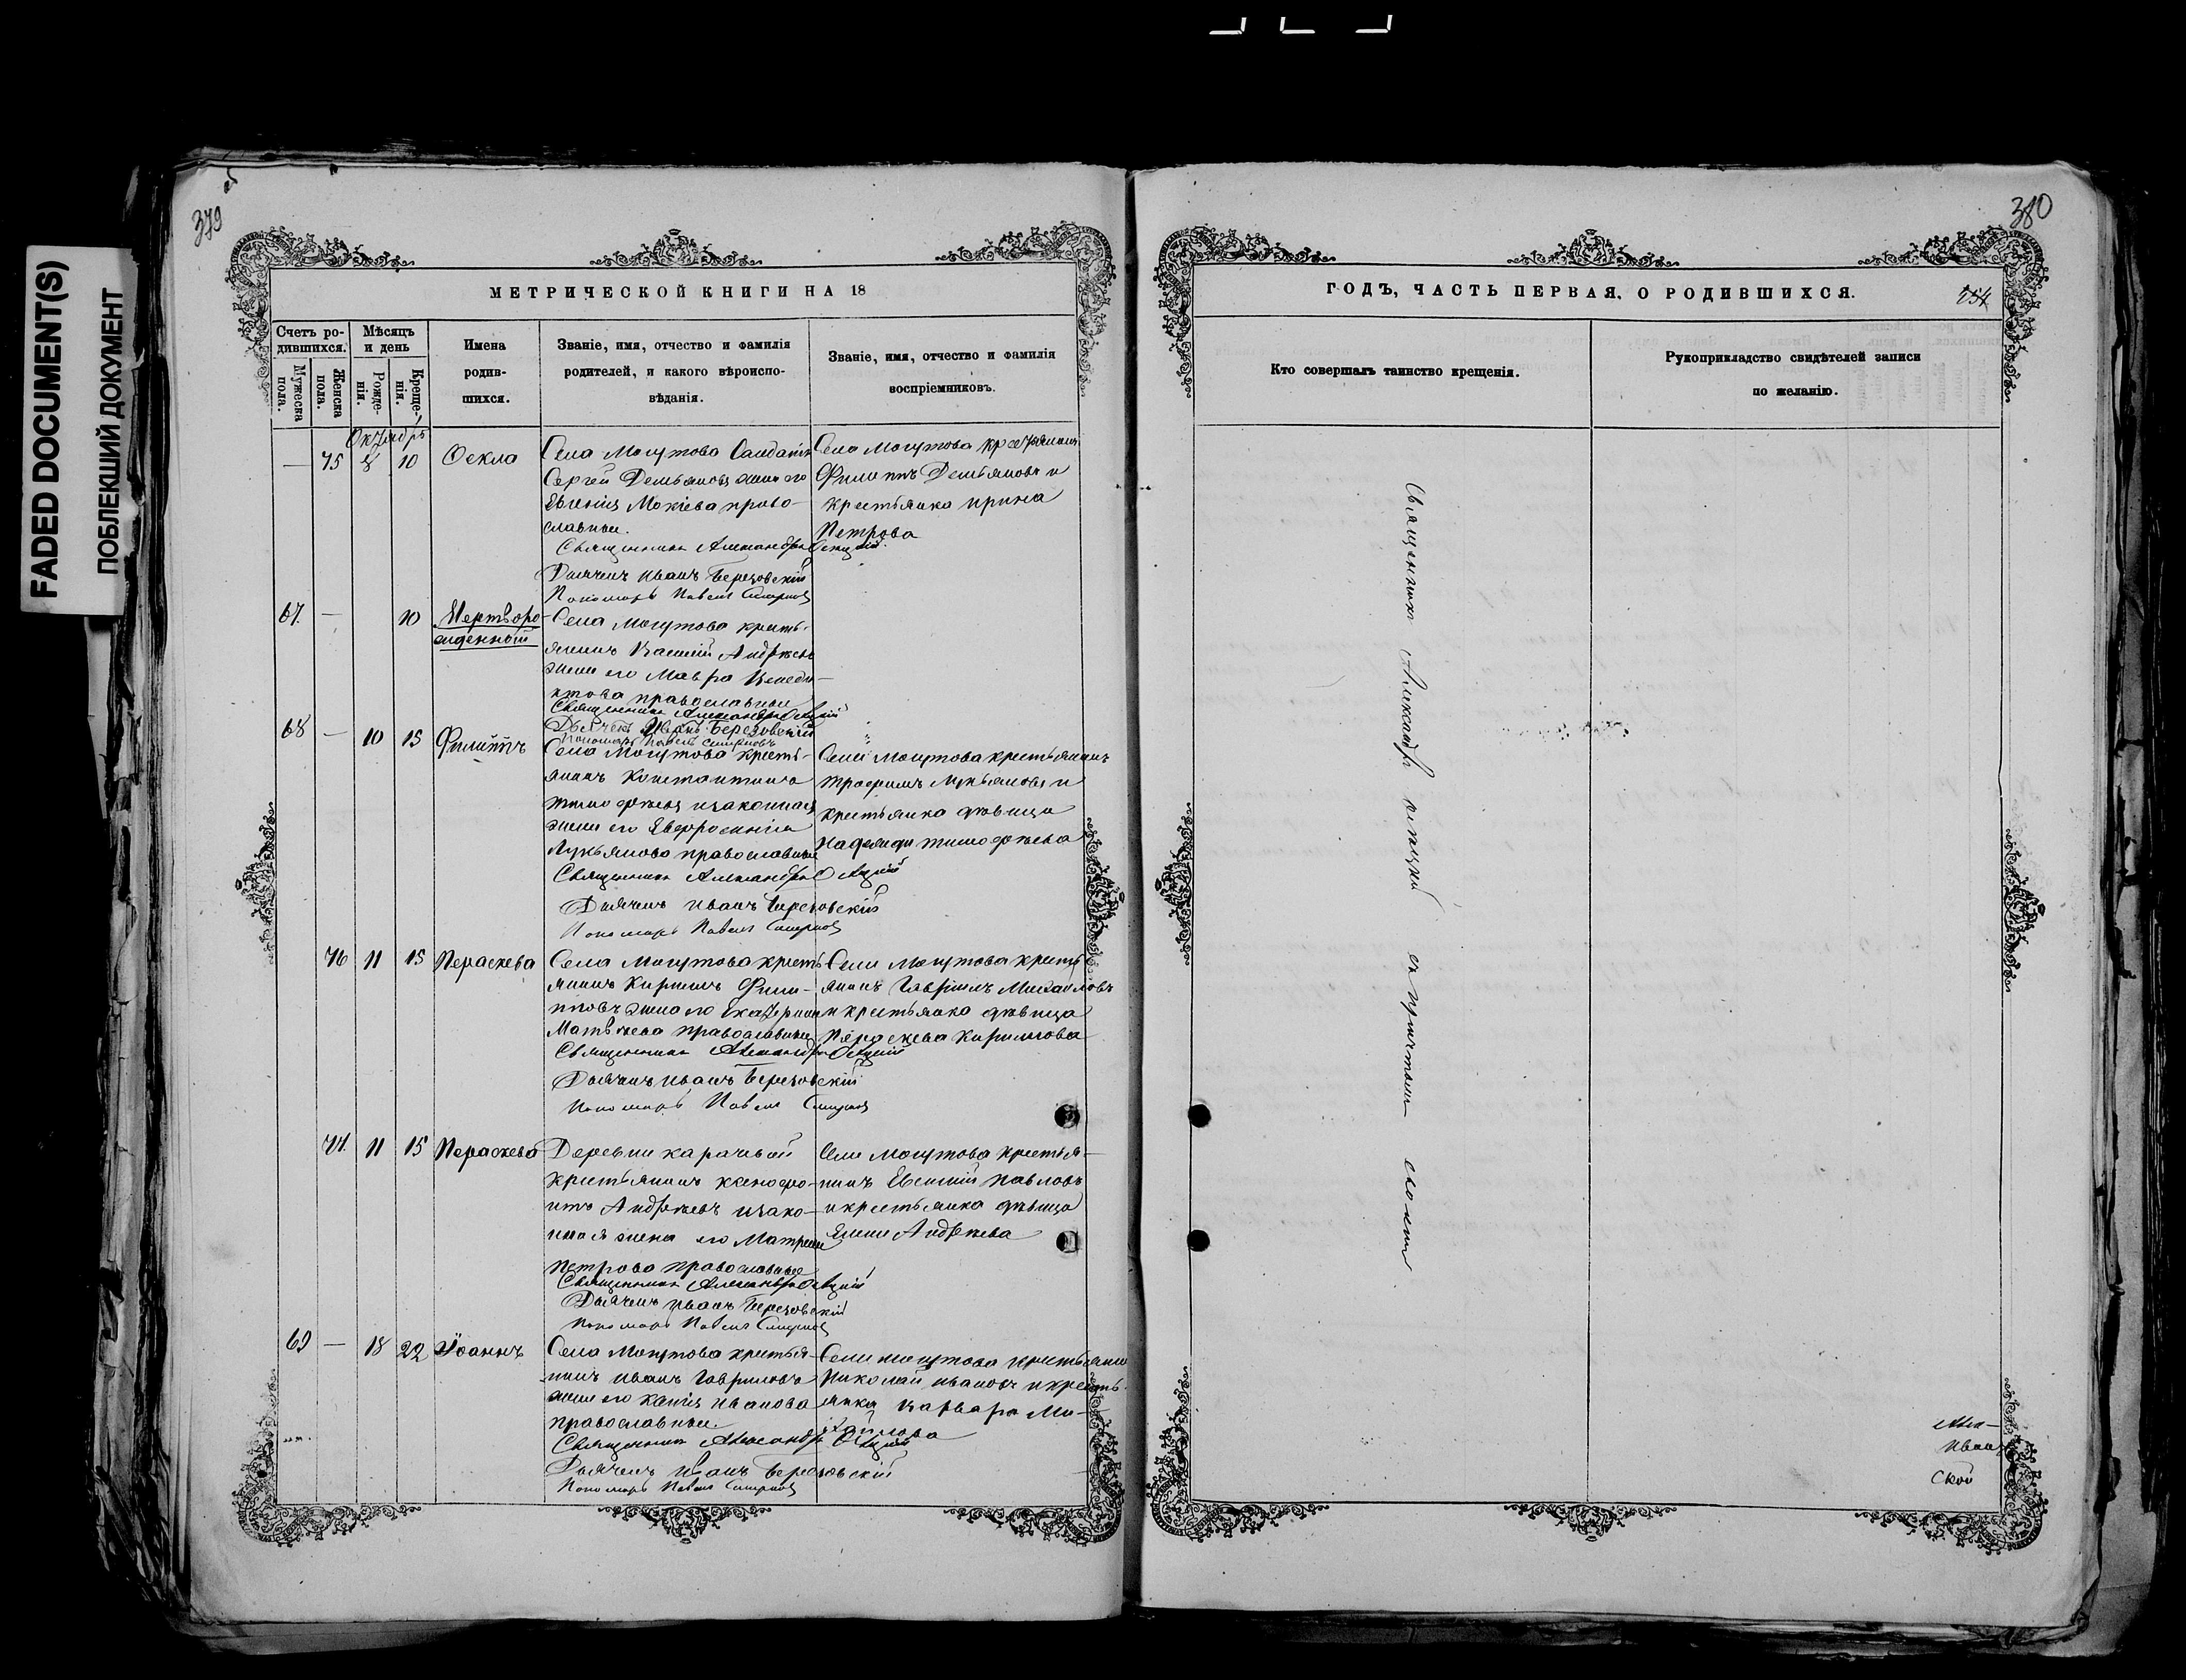 FADED DOCUMENT(S)
ПОБЛЕКШИЙ ДОКУМЕНТ
379
МЕТРИЧЕСКОЙ КНИГИ НА 18
Счетъ ро-
дившихся.
Мужеска
пола.
Женска
пола.
Мѣсяцъ
и день
Рожде-
нія.
Креще-
нія.
Имена
родив-
шихся.
Званіе, имя, отчество и фамилія
родителей, и какого вѣроиспо-
вѣданія.
Званіе, имя, отчество и фамилія
воспріемниковъ.
Октябрь
— 75 8 10 Ѳекла
Села Могутова Салдатъ
Сергей Демьяновъ жена его
Евгенія Мокіева право-
славные.
Священникъ Александръ
Дьячекъ Иванъ Березовскій
Пономарь Павелъ Смирновъ
Села Могутова крестьянинъ
Филиппъ Демьяновъ и
крестьянка Ирина
Петрова
67. — 10 Мертворо-
жденный
Села Могутова кресть-
янинъ Василій Андреевъ
жена его Мавра Венеди-
ктова православные
Священникъ Александръ
Дьячекъ Иванъ Березовскій
Пономарь Павелъ Смирновъ
68 — 10 15 Филиппъ
Села Могутова кресть-
янинъ Константинъ
Тимофеевъ и законная
жена его Евфросинія
Лукьянова православные
Священникъ Александръ
Дьячекъ Иванъ Березовскій
Пономарь Павелъ Смирновъ
Села Могутова крестьянинъ
Трофимъ Лукьяновъ и
крестьянка дѣвица
Надежда Тимофеева
76 11 15 Пераскева
Села Могутова кресть-
янинъ Кирилъ Фили-
повъ жена его Екатерина
Матвѣева православные
Священникъ Александръ
Дьячекъ Иванъ Березовскій
Пономарь Павелъ Смирновъ
Села Могутова кресть-
янинъ Гавріилъ Михайловъ
и крестьянка дѣвица
Пераскева Кирилова
77. 11 15 Пераскева
Деревни Карачевой
крестьянинъ Ксенофо-
нтъ Андреевъ и зако-
нная жена его Матрена
Петрова православные
Священникъ Александръ
Дьячекъ Иванъ Березовскій
Пономарь Павелъ Смирновъ
Села Могутова крестья-
нинъ Евгеній Павловъ
и крестьянка дѣвица
Андреева
69 — 18 22 Іоаннъ
Села Могутова крестья-
нинъ Иванъ Гавриловъ
жена его Иванова
православные.
Священникъ Александръ
Дьячекъ Иванъ Березовскій
Пономарь Павелъ Смирновъ
Села Могутова крестьянинъ
Николай Ивановъ и кресть-
янка Варвара Ми-
хайлова
380
ГОДЪ, ЧАСТЬ ПЕРВАЯ, О РОДИВШИХСЯ.
254
Кто совершалъ таинство крещенія.
Рукоприкладство свидѣтелей записи
по желанію.
Священникъ Александръ съ причтомъ
Иванъ
ской